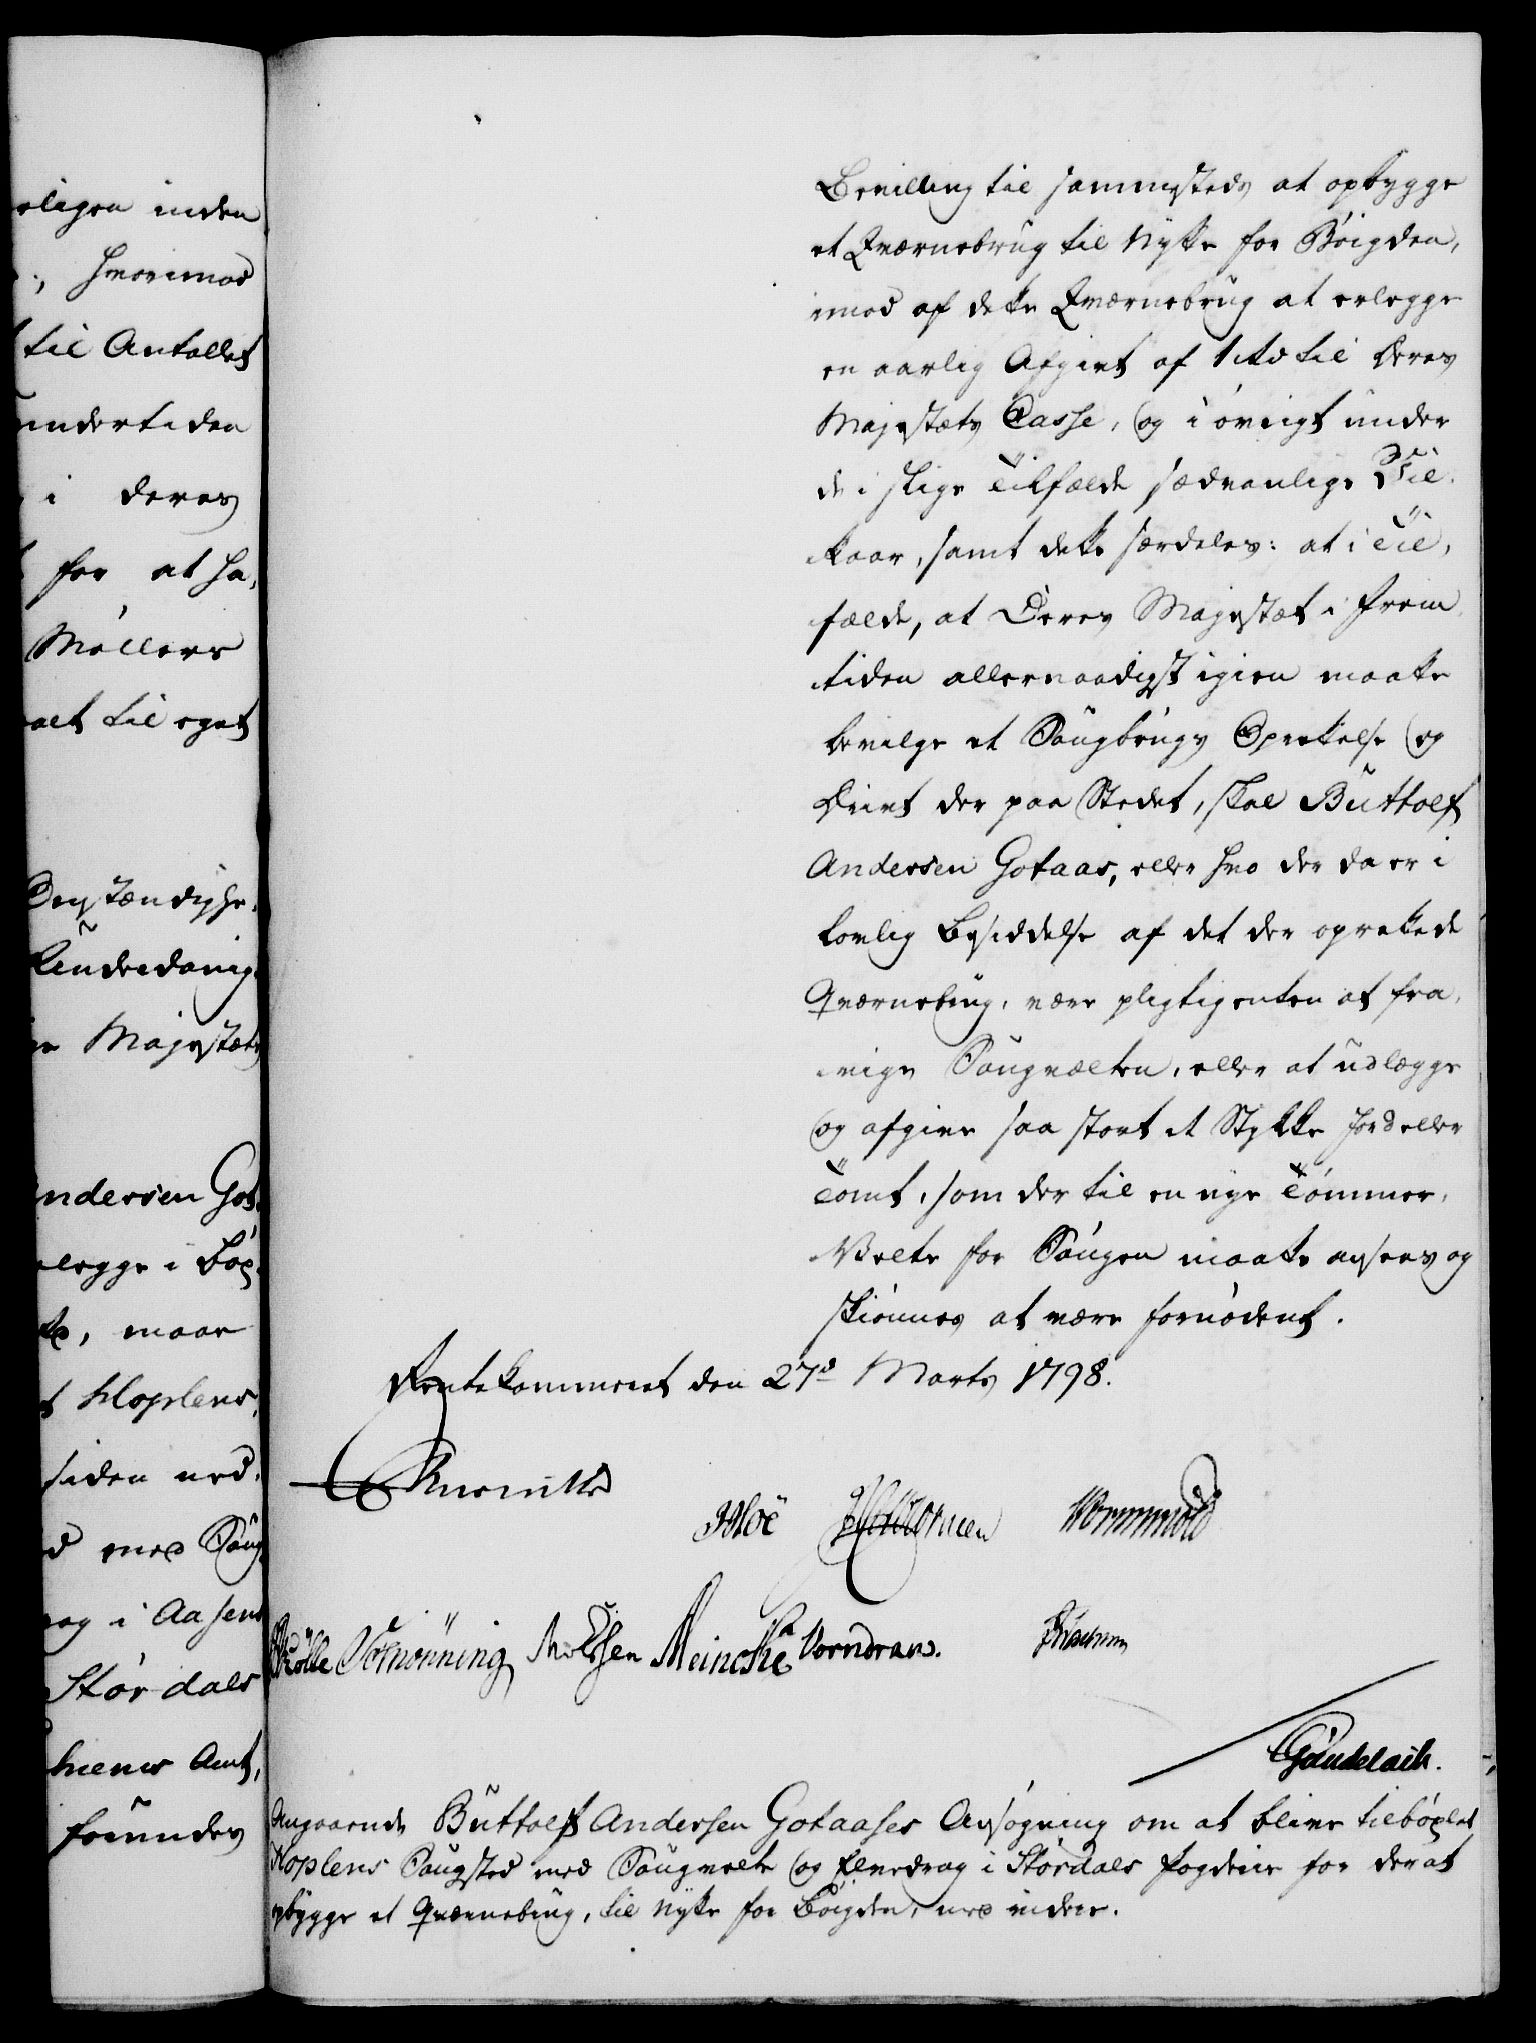 eligen inden
hvorimod
til Antallet
undertiden
i deres
for at ha,
Møllere
alt til eget
Omstændighe,
Underdanig,
Majestæts
Andersen Got,
legge i Bøx,
maae
Hoplens,
siden ned,
med Saug,
i Aasens
Størdals
hiems Amt,
fiundes
Bevilling til sammesteds at opbygge
et Qværnebrug til Nytte for Bøigden,
imod af dette Qværnebrug at erlegge
en aarlig Afgivt af 1 rd til Deres
Majestæts Casse, og i øvrigt under
de i slige Tilfælde sædvanlige Vil-
kaar, samt dette særdeles: at i Til,
fælde, at Deres Majestæt i Frem,
tiden allernaadigst igien maatte
bevilge et Saugbrugs Oprettelse og
Drivt der paa Stedet, skal Buttolf
Andersen Gotaas, eller hvo der da er i
lovlig Besiddelse af det der oprettede
Qværnebrug, være pligtig enten at fra,
vige Saugvælten, eller at udlægge
og afgive saa stort et Stykke Jord eller
Tomt, som der til en nye Tømmer,
Velte for Saugen maatte ansees og
skiønnes at være fornødent.
Rentekammeret den 27d Marts 1798.
Wormskiold
Rølle Schønning Meincke Vorndran.
Gundelach.
Angaaende Buttolf Andersen Gotaases Ansøgning om at blive tilbøxlet
Hoplens Saugsted med Saugvelte og Elvedrag i Størdals Fogderie for der at
opbygge et Qværnebrug, til Nytte for Bøigden, med videre.